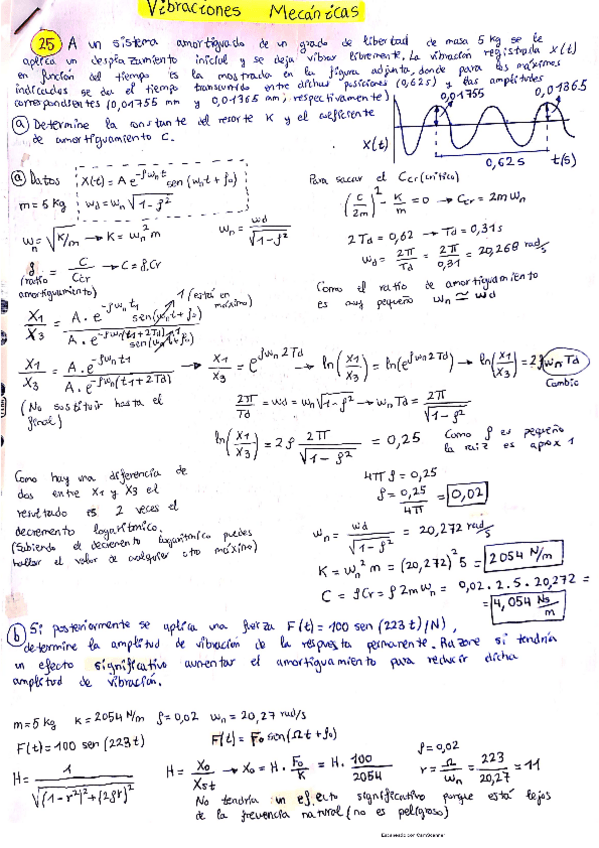 Vibraciones Mecánicas
25 A un sistema amortiguado de un grado de libertad de masa 5 kg se le
aplica un desplazamiento inicial y se deja vibrar libremente. La vibración registrada x(t)
en función del tiempo es la mostrada en la figura adjunta, donde para los máximos
indicados se da el tiempo transcurrido entre dichas posiciones (0,62 s) y las amplitudes
correspondientes (0,01755 mm y 0,01365 mm, respectivamente)
0,01755
0,01365
x(t)
0,62 s
t(s)
a Determine la constante del resorte K y el coeficiente
de amortiguamiento C.
a Datos
m = 5 kg
X(t) = A e^-ρwnt sen(wdt + ρ0)
wd = wn √1-ρ²
wn = √K/m → K = wn² m
wn = wd / √1-ρ²
ρ = C / Ccr → C = ρ.Cr
(ratio
amortiguamiento)
Para sacar el Ccr (crítico)
(C/2m)² - K/m = 0 → Ccr = 2m wn
2Td = 0,62 → Td = 0,31 s
wd = 2π/Td = 2π/0,31 = 20,268 rad/s
Como el ratio de amortiguamiento
es muy pequeño wn ≃ wd
1 (está en
máximo)
X1/X3 = A. e^-ρwnt1 sen(wnt + ρ0) / A. e^-ρwn(t1+2Td) sen(wnt + ρ0)
X1/X3 = A. e^-ρwnt1 / A. e^-ρwn(t1+2Td) → X1/X3 = e^ρwn2Td → ln(X1/X3) = ln(e^ρwn2Td) → ln(X1/X3) = 2ρ wn Td
Cambio
(No sustituir hasta el
final)
2π/Td = wd = wn √1-ρ² → wn Td = 2π/√1-ρ²
ln(X1/X3) = 2ρ 2π/√1-ρ² = 0,25
Como ρ es pequeño
la raiz es aprox 1
Como hay una diferencia de
dos entre X1 y X3 el
resultado es 2 veces el
decremento logarítmico.
(Sabiendo el decremento logarítmico puedes
hallar el valor de cualquier otro máximo)
4πρ = 0,25
ρ = 0,25/4π = 0,02
wn = wd/√1-ρ² = 20,272 rad/s
K = wn² m = (20,272)² 5 = 2054 N/m
C = ρCr = ρ 2m wn = 0,02 . 2 . 5 . 20,272 =
= 4,054 Ns/m
b Si posteriormente se aplica una fuerza F(t) = 100 sen (223 t) (N),
determine la amplitud de vibración de la respuesta permanente. Razone si tendría
un efecto significativo aumentar el amortiguamiento para reducir dicha
amplitud de vibración.
m = 5 kg K = 2054 N/m ρ = 0,02 wn = 20,27 rad/s
F(t) = 100 sen (223 t)
F(t) = F0 sen(Ωt + ρ0)
H = 1 / √(1-r²)² + (2ρr)²
H = X0/Xst → X0 = H . F0/K = H . 100/2054
ρ = 0,02
r = Ω/wn = 223/20,27 = 11
No tendría un efecto significativo porque está lejos
de la frecuencia natural (no es peligroso)
Escaneado con CamScanner